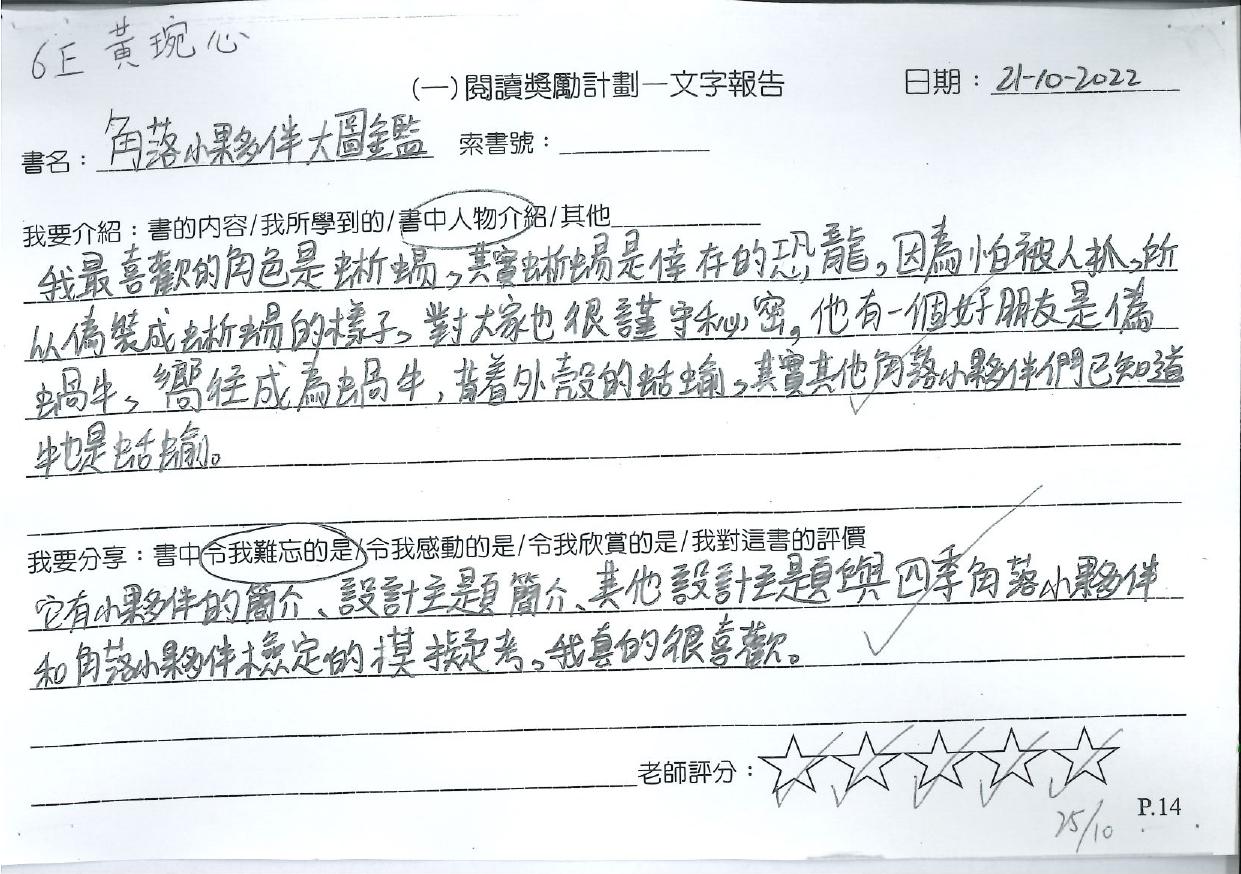 6E 黃琬心
(一)閱讀獎勵計劃—文字報告 日期：21-10-2022
書名：角落小夥伴大圖鑑 索書號：
我要介紹：書的內容/我所學到的/書中人物介紹/其他
我最喜歡的角色是蜥蜴，其實蜥蜴是倖存的恐龍，因為怕被人抓，所
以偽裝成蜥蜴的樣子，對大家也很謹守秘密，他有一個好朋友是偽
蝸牛，嚮往成為蝸牛，背着外殼的蛞蝓，其實其他角落小夥伴們已知道
牠是蛞蝓。
我要分享：書中令我難忘的是/令我感動的是/令我欣賞的是/我對這書的評價
它有小夥伴的簡介、設計主題簡介、其他設計主題與四季角落小夥伴
和角落小夥伴檢定的摸擬考，我真的很喜歡。
老師評分：
25/10
P.14